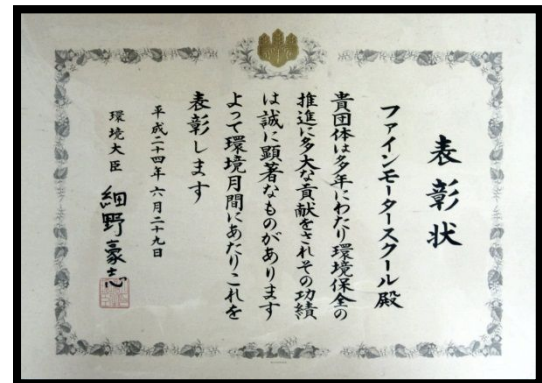 表彰状
ファインモータースクール殿
貴団体は多年にわたり環境保全の
推進に多大な貢献をされその功績
は誠に顕著なものがあります
よって環境月間にあたりこれを
表彰します
平成二十四年六月二十九日
環境大臣 細野豪志